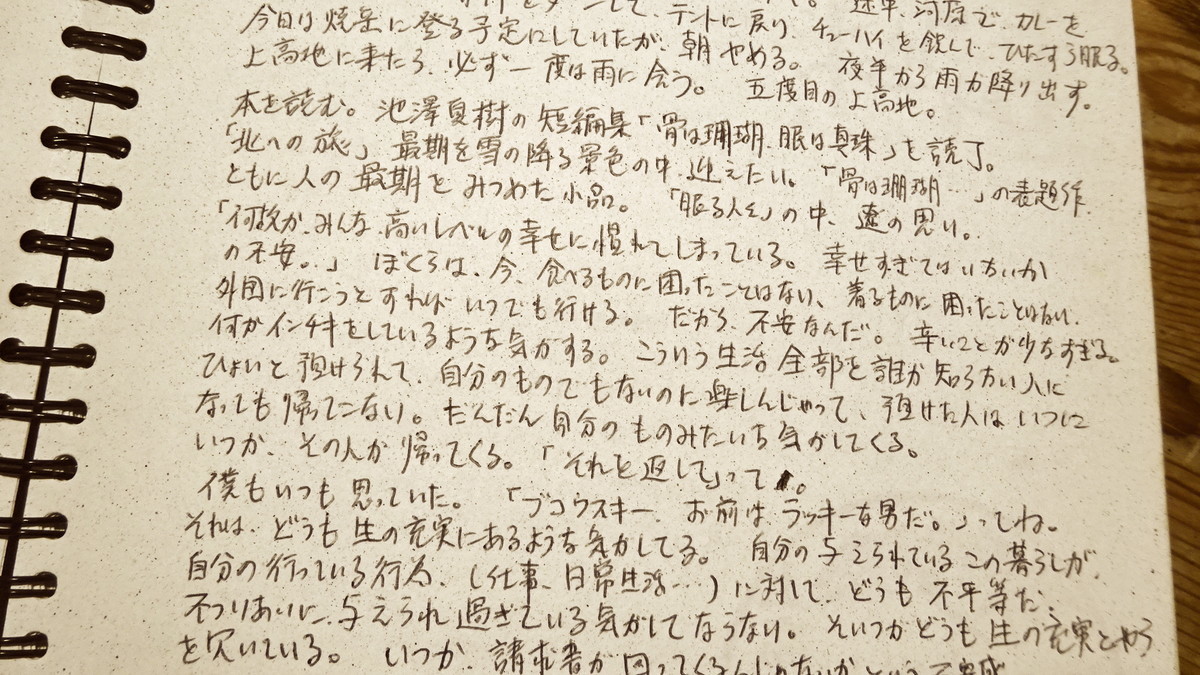 途中、河原で、カレーを
して、テントに戻り、チューハイを飲んで、ひたすら眠る。
今日は焼岳に登る予定にしていたが、朝やめる。 夜半から雨が降り出す。
上高地に来たら、必ず一度は雨に会う。 五度目の上高地。
本を読む。池澤夏樹の短編集「骨は珊瑚、眼は真珠」を読了。
「北への旅」最期を雪の降る景色の中、迎えたい。「骨は珊瑚…」の表題作、
ともに人の最期をみつめた小品。 「眠る人々」の中、遼の思い。
「何故か、みんな、高いレベルの幸せに慣れてしまっている。 幸せすぎてはいないか
の不安。」 ぼくらは、今、食べるものに困ったことはない、着るものに困ったことはない、
外国に行こうとすればいつでも行ける。 だから、不安なんだ。 辛いことが少なすぎる。
何かインチキをしているような気がする。こういう生活全部を誰か知らない人に
ひょいと預けられて、自分のものでもないのに楽しんじゃって、預けた人はいつに
なっても帰ってこない。だんだん自分のものみたいな気がしてくる。
いつか、その人が帰ってくる。「それを返して」って。
僕もいつも思っていた。 「ブコウスキー、お前はラッキーな男だ。」ってね。
それは、どうも生の充実にあるような気がしてる。 自分の与えられているこの暮らしが、
自分の行っている行為、(仕事、日常生活…)に対して、どうも不平等だ、
不つりあいに、与えられ過ぎている気がしてならない。そいつがどうも生の充実とやら
を欠いている。 いつか、請求書が回ってくるんじゃないかという不安感